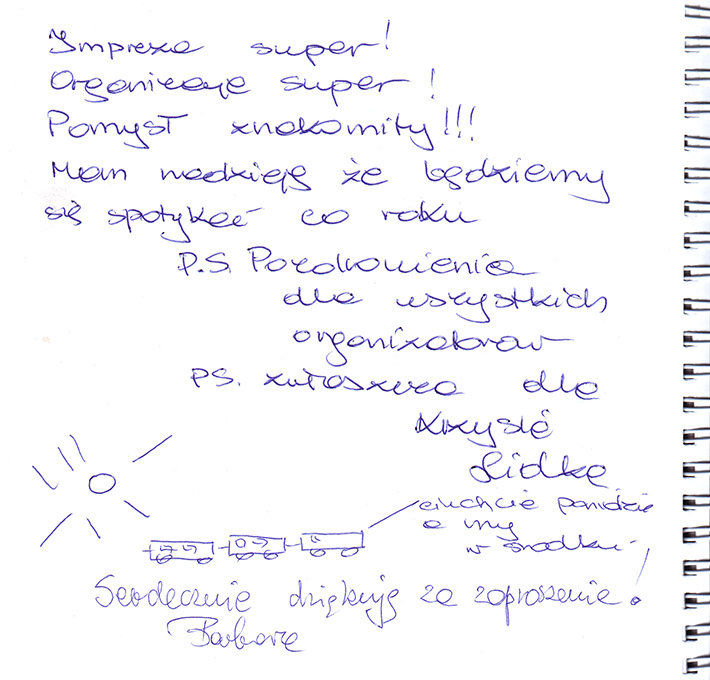 Impreza super!
Organizacje super!
Pomysł znakomity!!!
Mam nadzieję że będziemy
się spotykać co roku
P.S. Pozdrowienia
dla wszystkich
organizatorów
PS. zwłaszcza dla
Krzysia
Lidkę
ciuchcie ponidzie
a my
w środku
Serdecznie dziękuję za zaproszenie!
Barbara